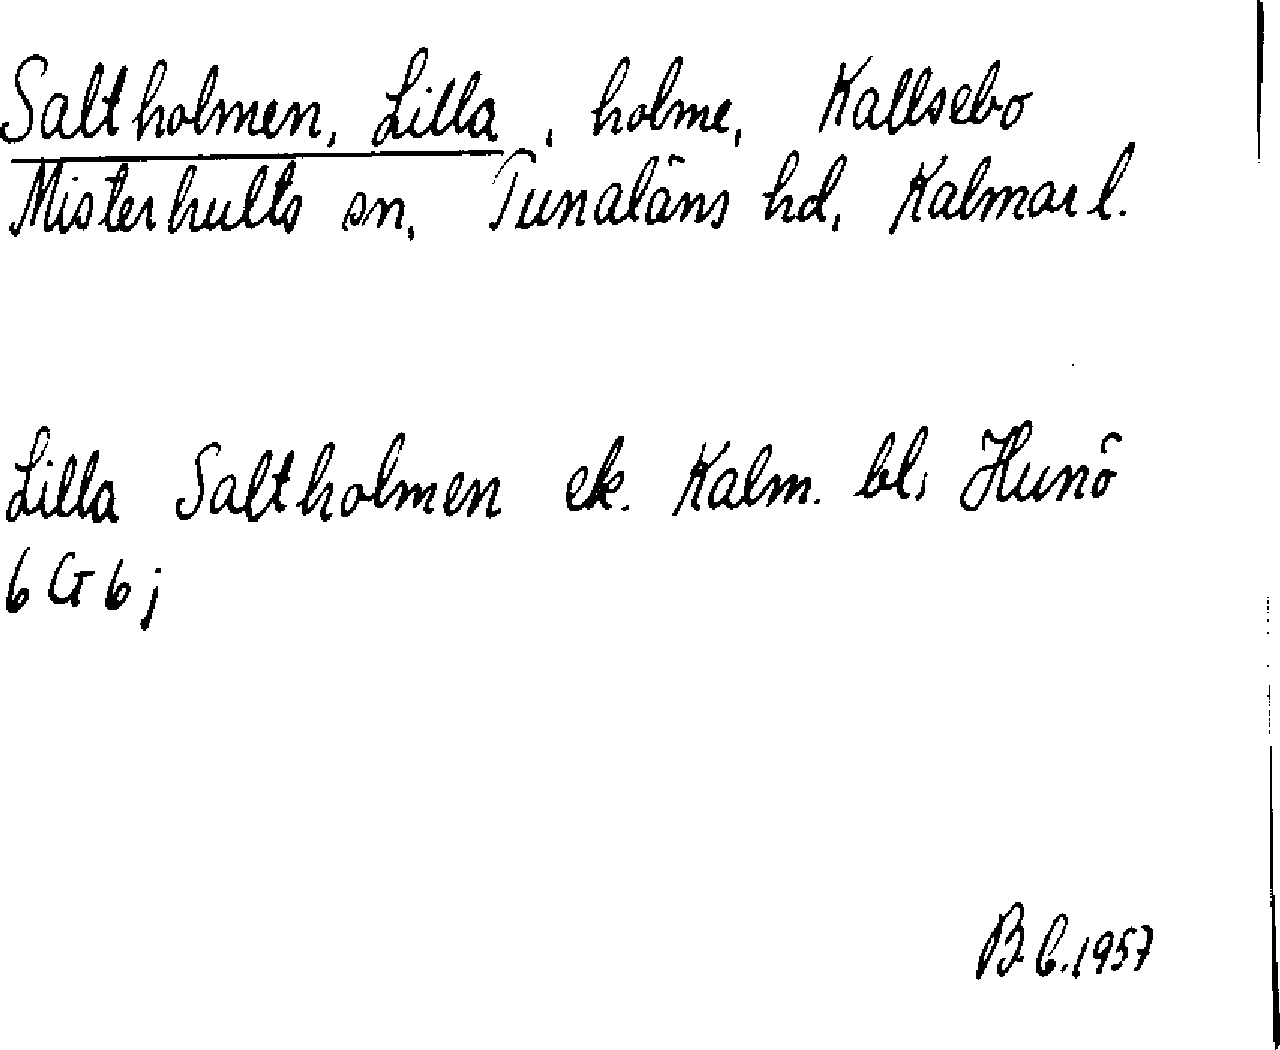 Saltholmen, Lilla, holme, Kallsebo
Misterhults sn, Tunaläns hd, Kalmar l.
Lilla Saltholmen ek. Kalm. bl, Hunö
6 G 6 j
B. 6. 1957